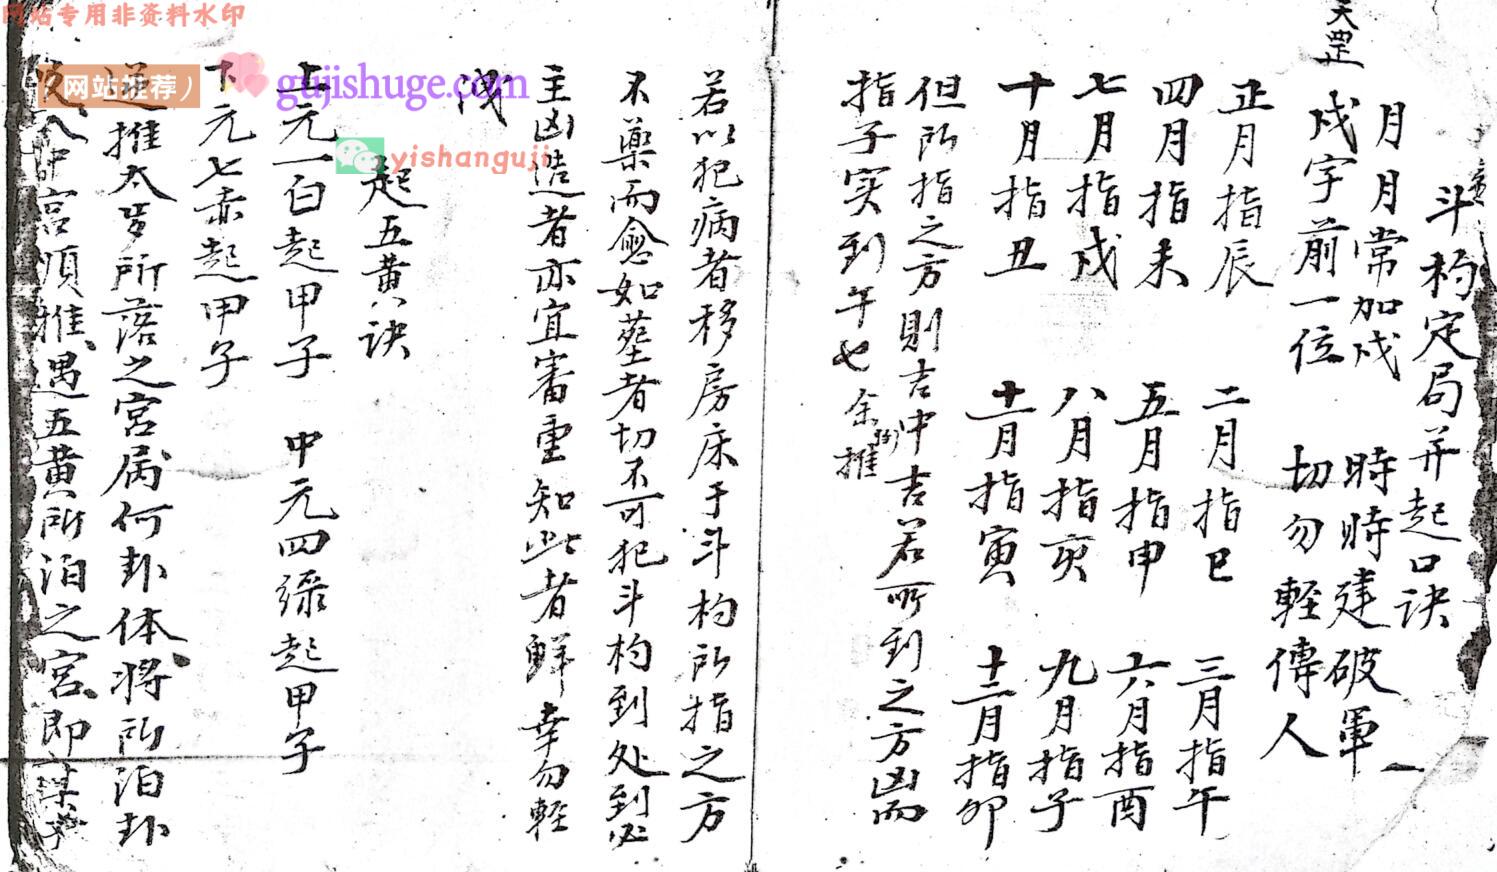 网站专用非资料水印
网站推荐）
gujishuge.com
yishanguji
天罡
斗杓定局并起口诀
月月常加戌 時時建破軍
戌字前一位 切勿輕傳人
正月指辰 二月指巳 三月指午
四月指未 五月指申 六月指酉
七月指戌 八月指亥 九月指子
十月指丑 十一月指寅 十二月指卯
但所指之方則吉中吉若所到之方凶而
指子实到午也余推
若以犯病者移房床于斗杓所指之方
不藥而愈如塟者切不可犯斗杓到处到必
主凶造者亦宜審重知此者鮮幸勿輕
洩
起五黄诀
上元一白起甲子 中元四綠起甲子
下元七赤起甲子
逆推太岁所落之宮属何卦体将所泊卦
入中宮順推遇五黄所泊之宮即